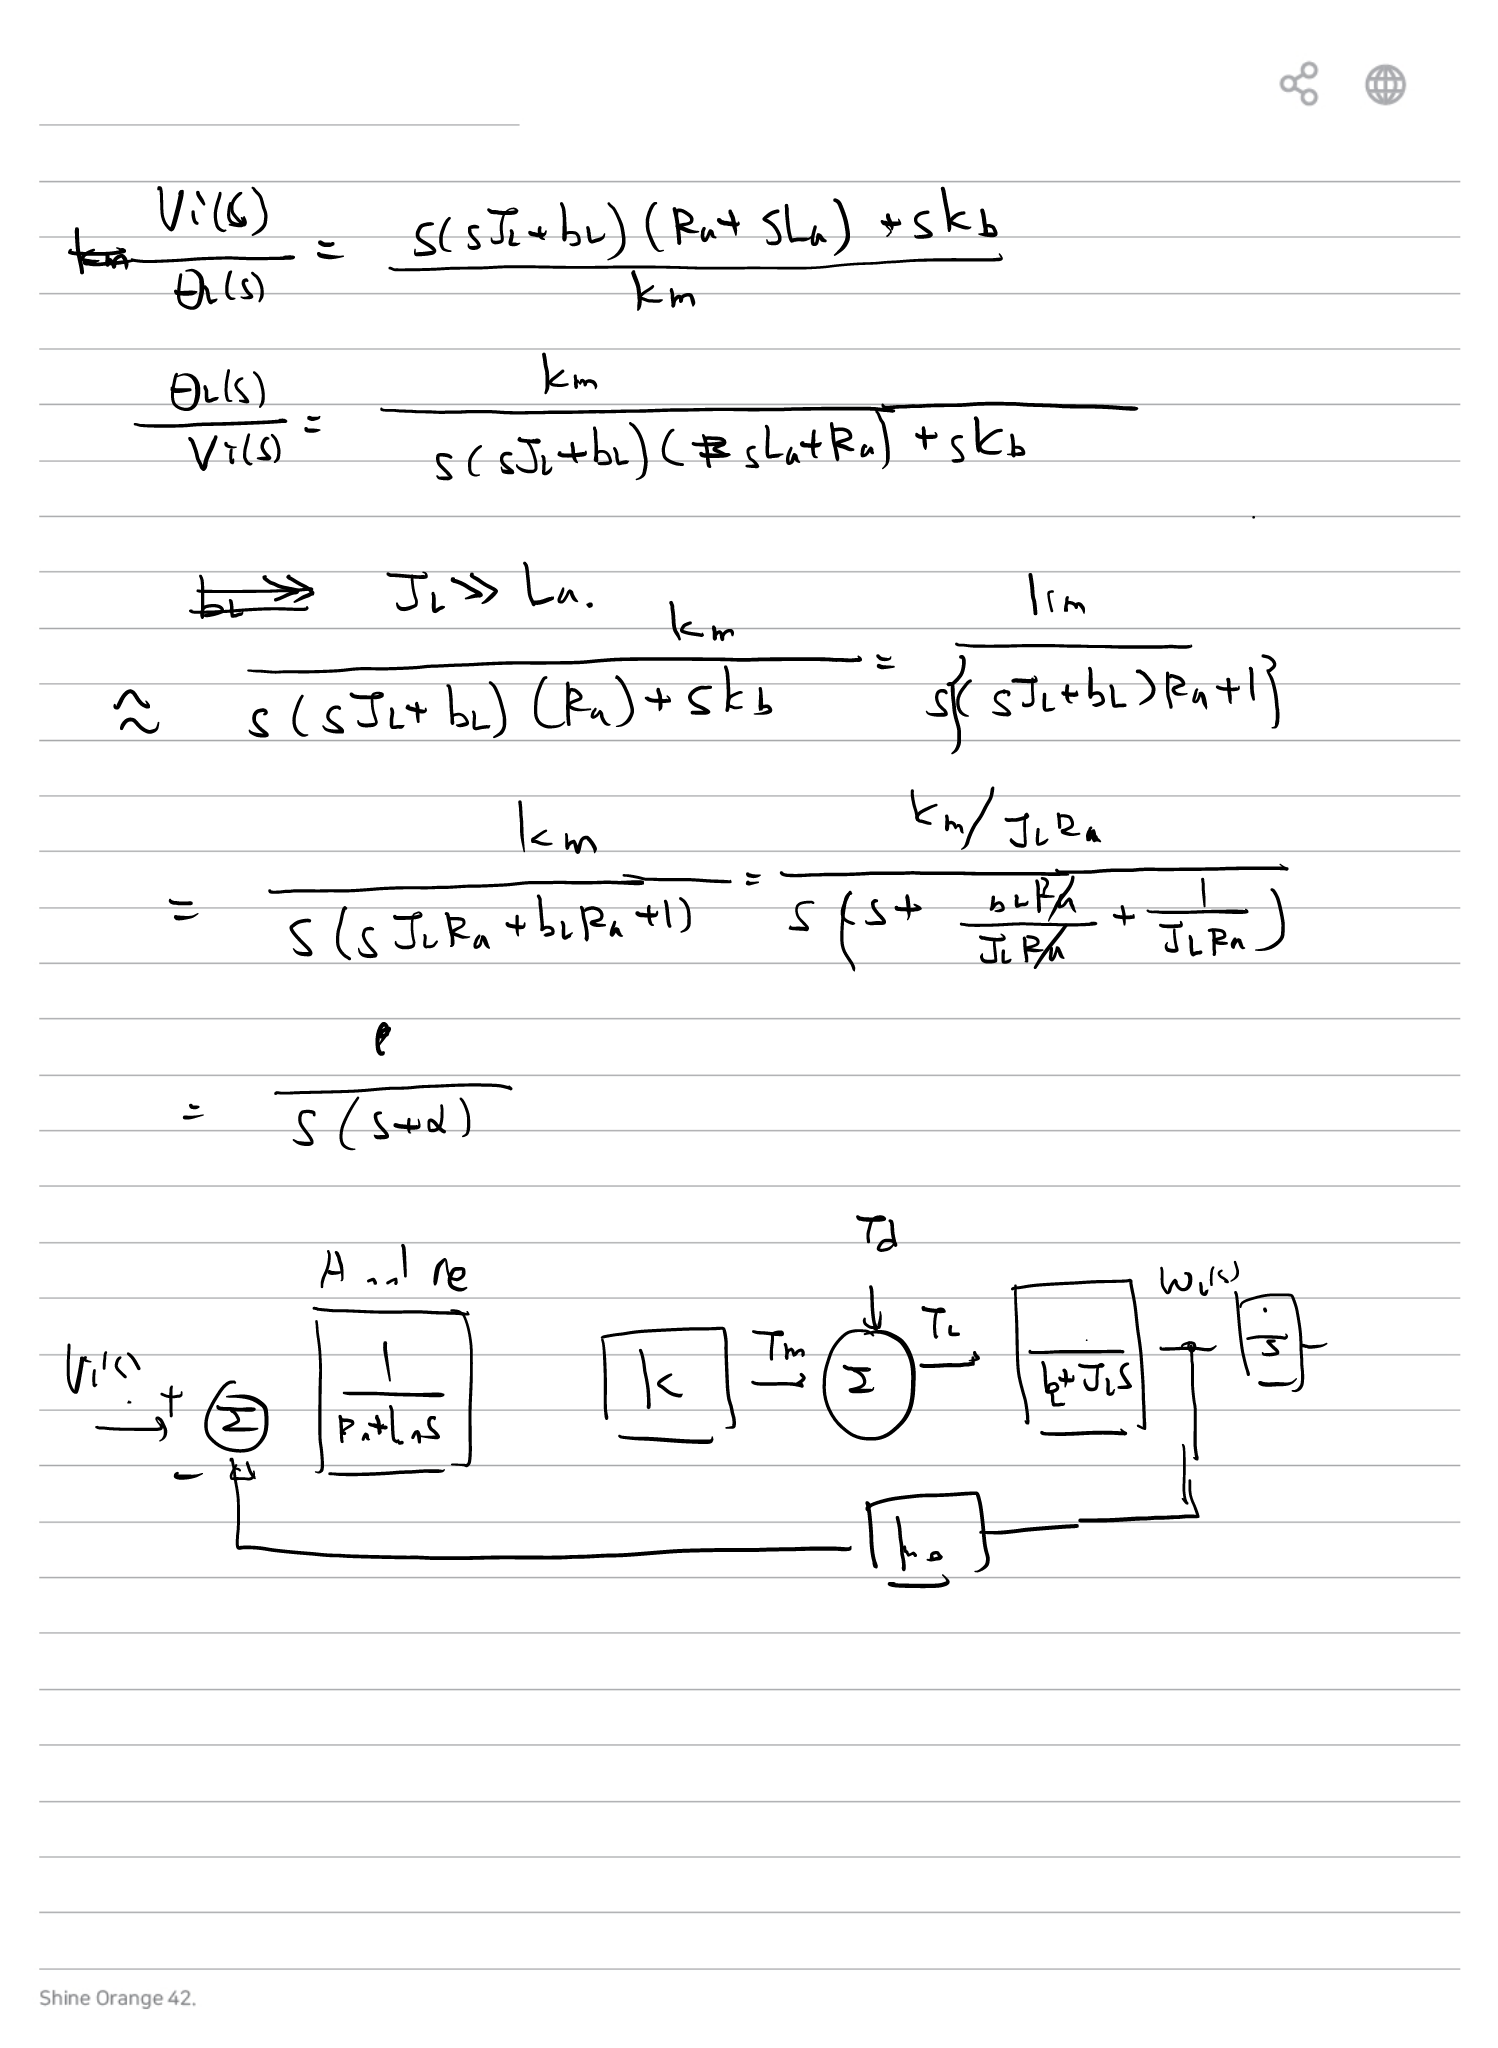 Vi(s) / θL(s) = s(sJL+bL)(Ra+sLa)+skb / km
θL(s) / Vi(s) = km / s(sJL+bL)(sLa+Ra)+skb
JL ≫ La.
≈ km / s(sJL+bL)(Ra)+skb = km / s{(sJL+bL)Ra+1}
= km / s(sJLRa+bLRa+1) = km/JLRa / s(s+ bLRa/JLRa + 1/JLRa)
= / s(s+α)
Td
Vi(s) + Σ 1/Ra+Las k Tm Σ TL bL+JLs WL(s) s
−
Shine Orange 42.